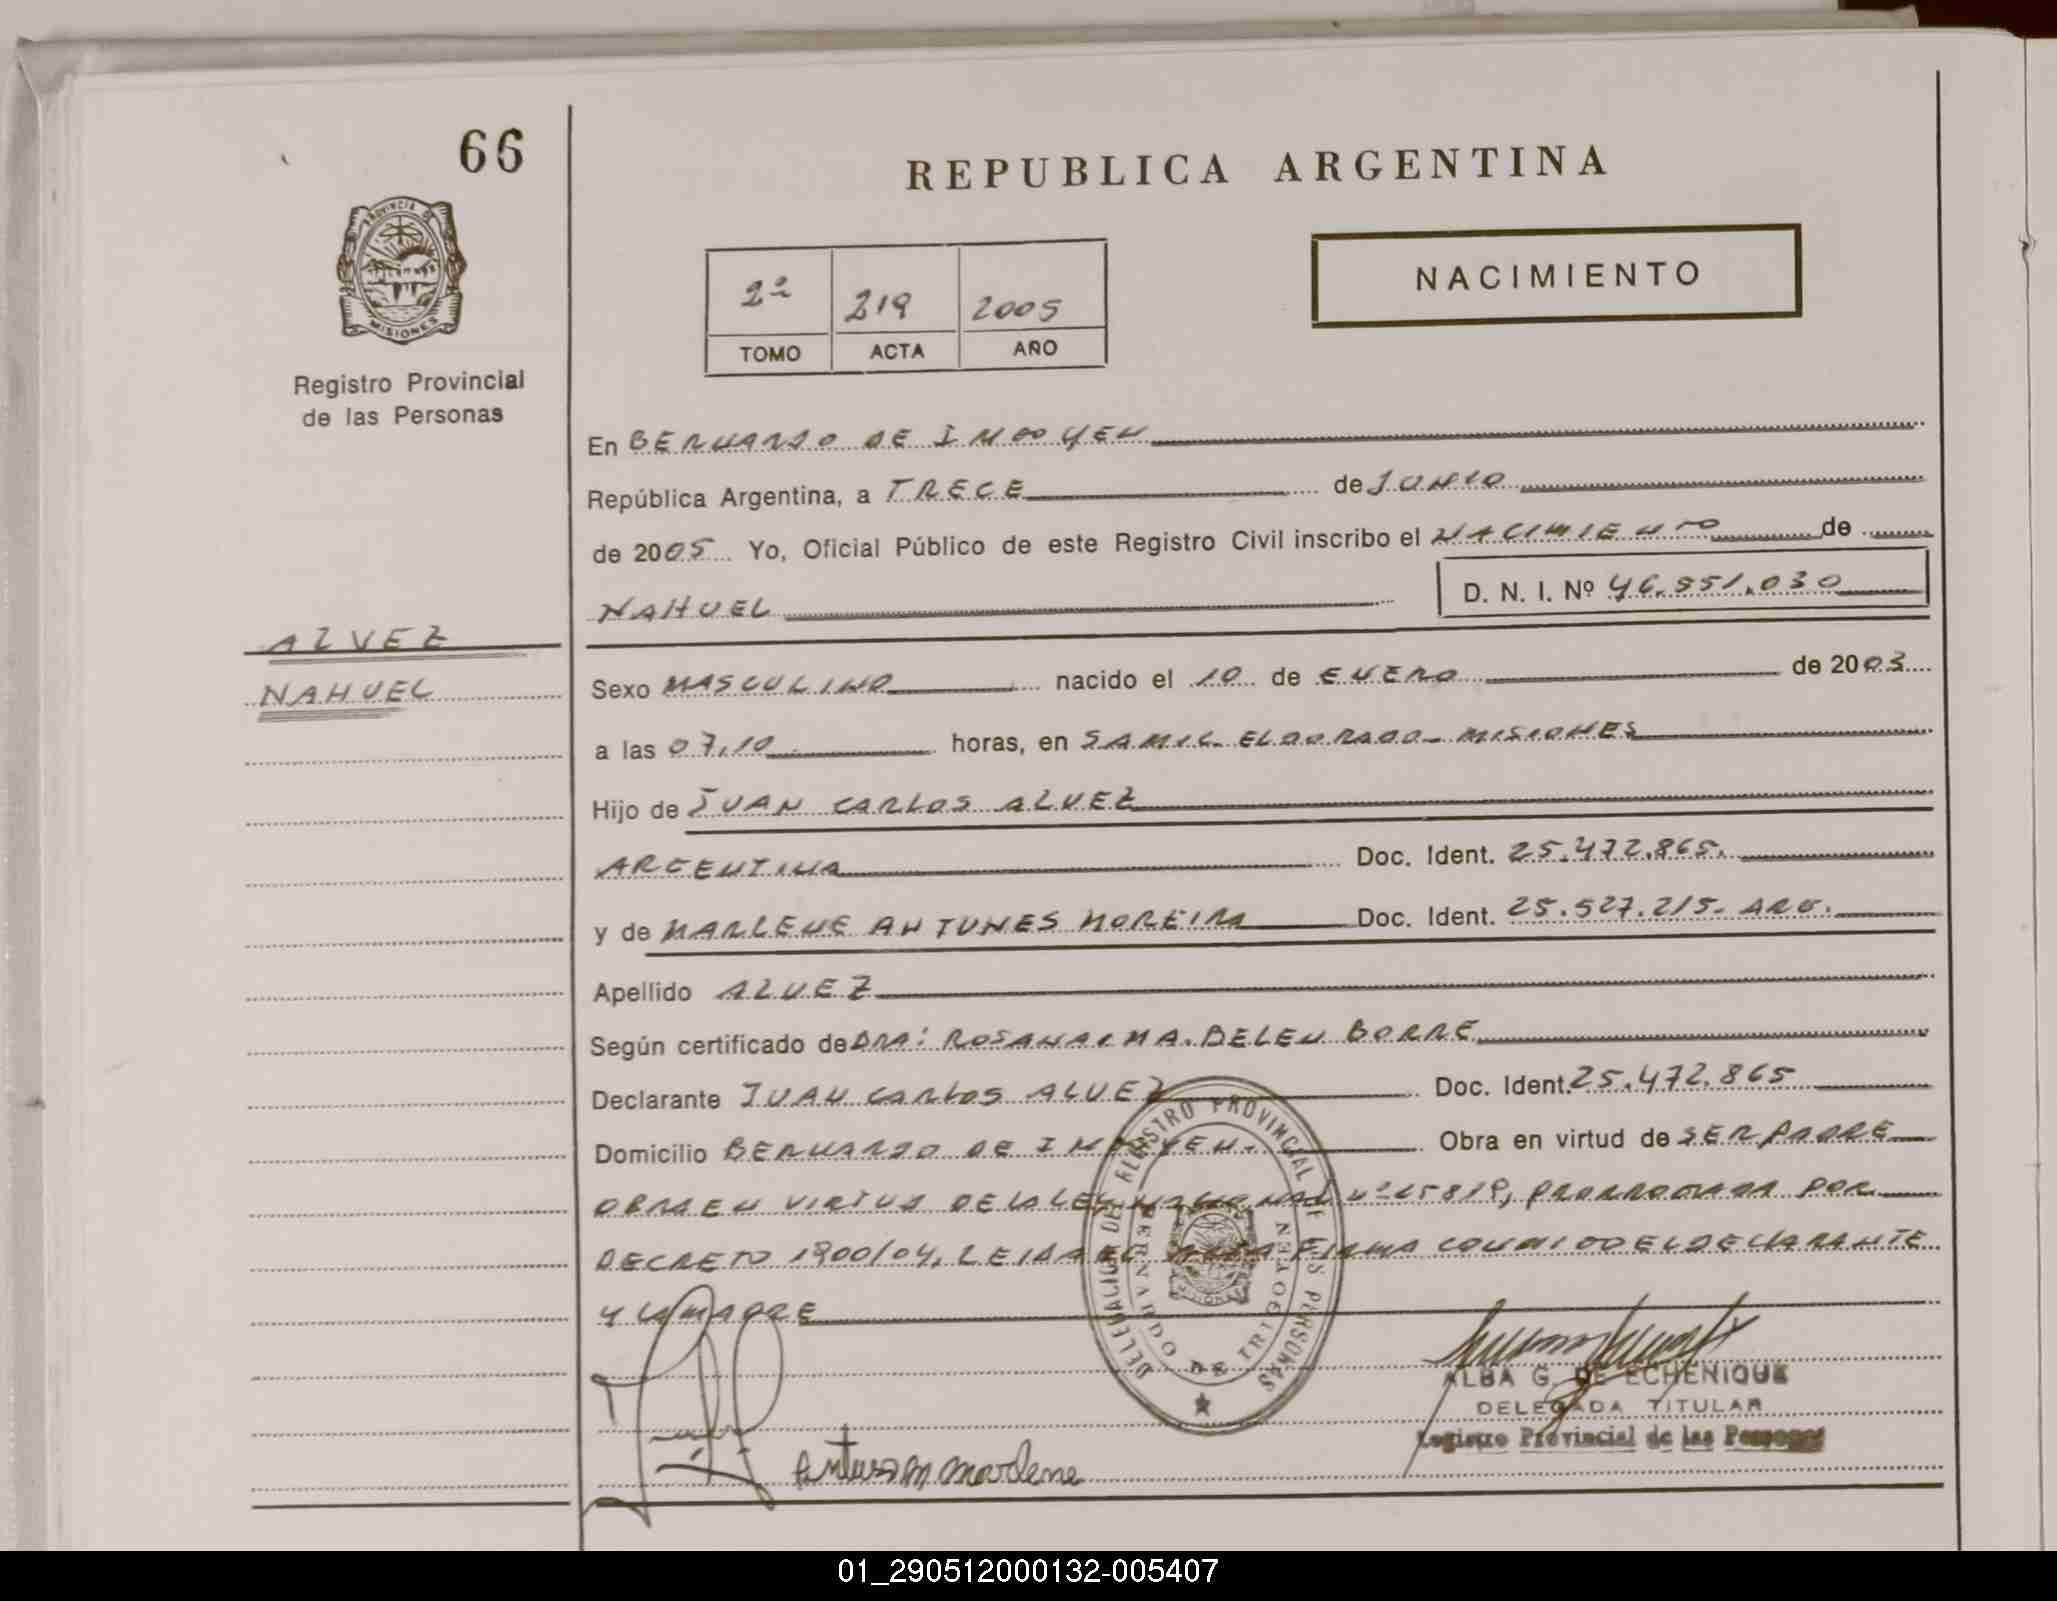 66
REPUBLICA ARGENTINA
PROVINCIA DE
MISIONES
Registro Provincial
de las Personas
2º 219 2005
TOMO ACTA AÑO
NACIMIENTO
En BERNARDO DE IRIGOYEN
República Argentina, a TRECE de JUNIO
de 2005 Yo, Oficial Público de este Registro Civil inscribo el NACIMIENTO de
NAHUEL D. N. I. Nº 46.551.030
ALVEZ
NAHUEL
Sexo MASCULINO nacido el 10 de ENERO de 2003
a las 07,10 horas, en SAMIC. ELDORADO_ MISIONES
Hijo de JUAN CARLOS ALVEZ
ARGENTINA Doc. Ident. 25.472.865.
y de MARLENE ANTUNES MOREIRA Doc. Ident. 25.527.215. ARG.
Apellido ALVEZ
Según certificado de DRA: ROSANA MA. BELEN BORRE
Declarante JUAN CARLOS ALVEZ Doc. Ident. 25.472.865
Domicilio BERNARDO DE IRIGOYEN. Obra en virtud de SER PADRE
OBRA EN VIRTUD DE LA LEY NACIONAL Nº 25819, PRORROGADA POR
DECRETO 1900/04, LEIDA EL ACTA FIRMA CONMIGO EL DECLARANTE
Y LA MADRE
DELEGACION DEL REGISTRO PROVINCIAL DE LAS PERSONAS
BERNARDO DE IRIGOYEN
MISIONES
ALBA G. DE ECHENIQUE
DELEGADA TITULAR
Registro Provincial de las Personas
Antunes M Marlene
01_290512000132-005407